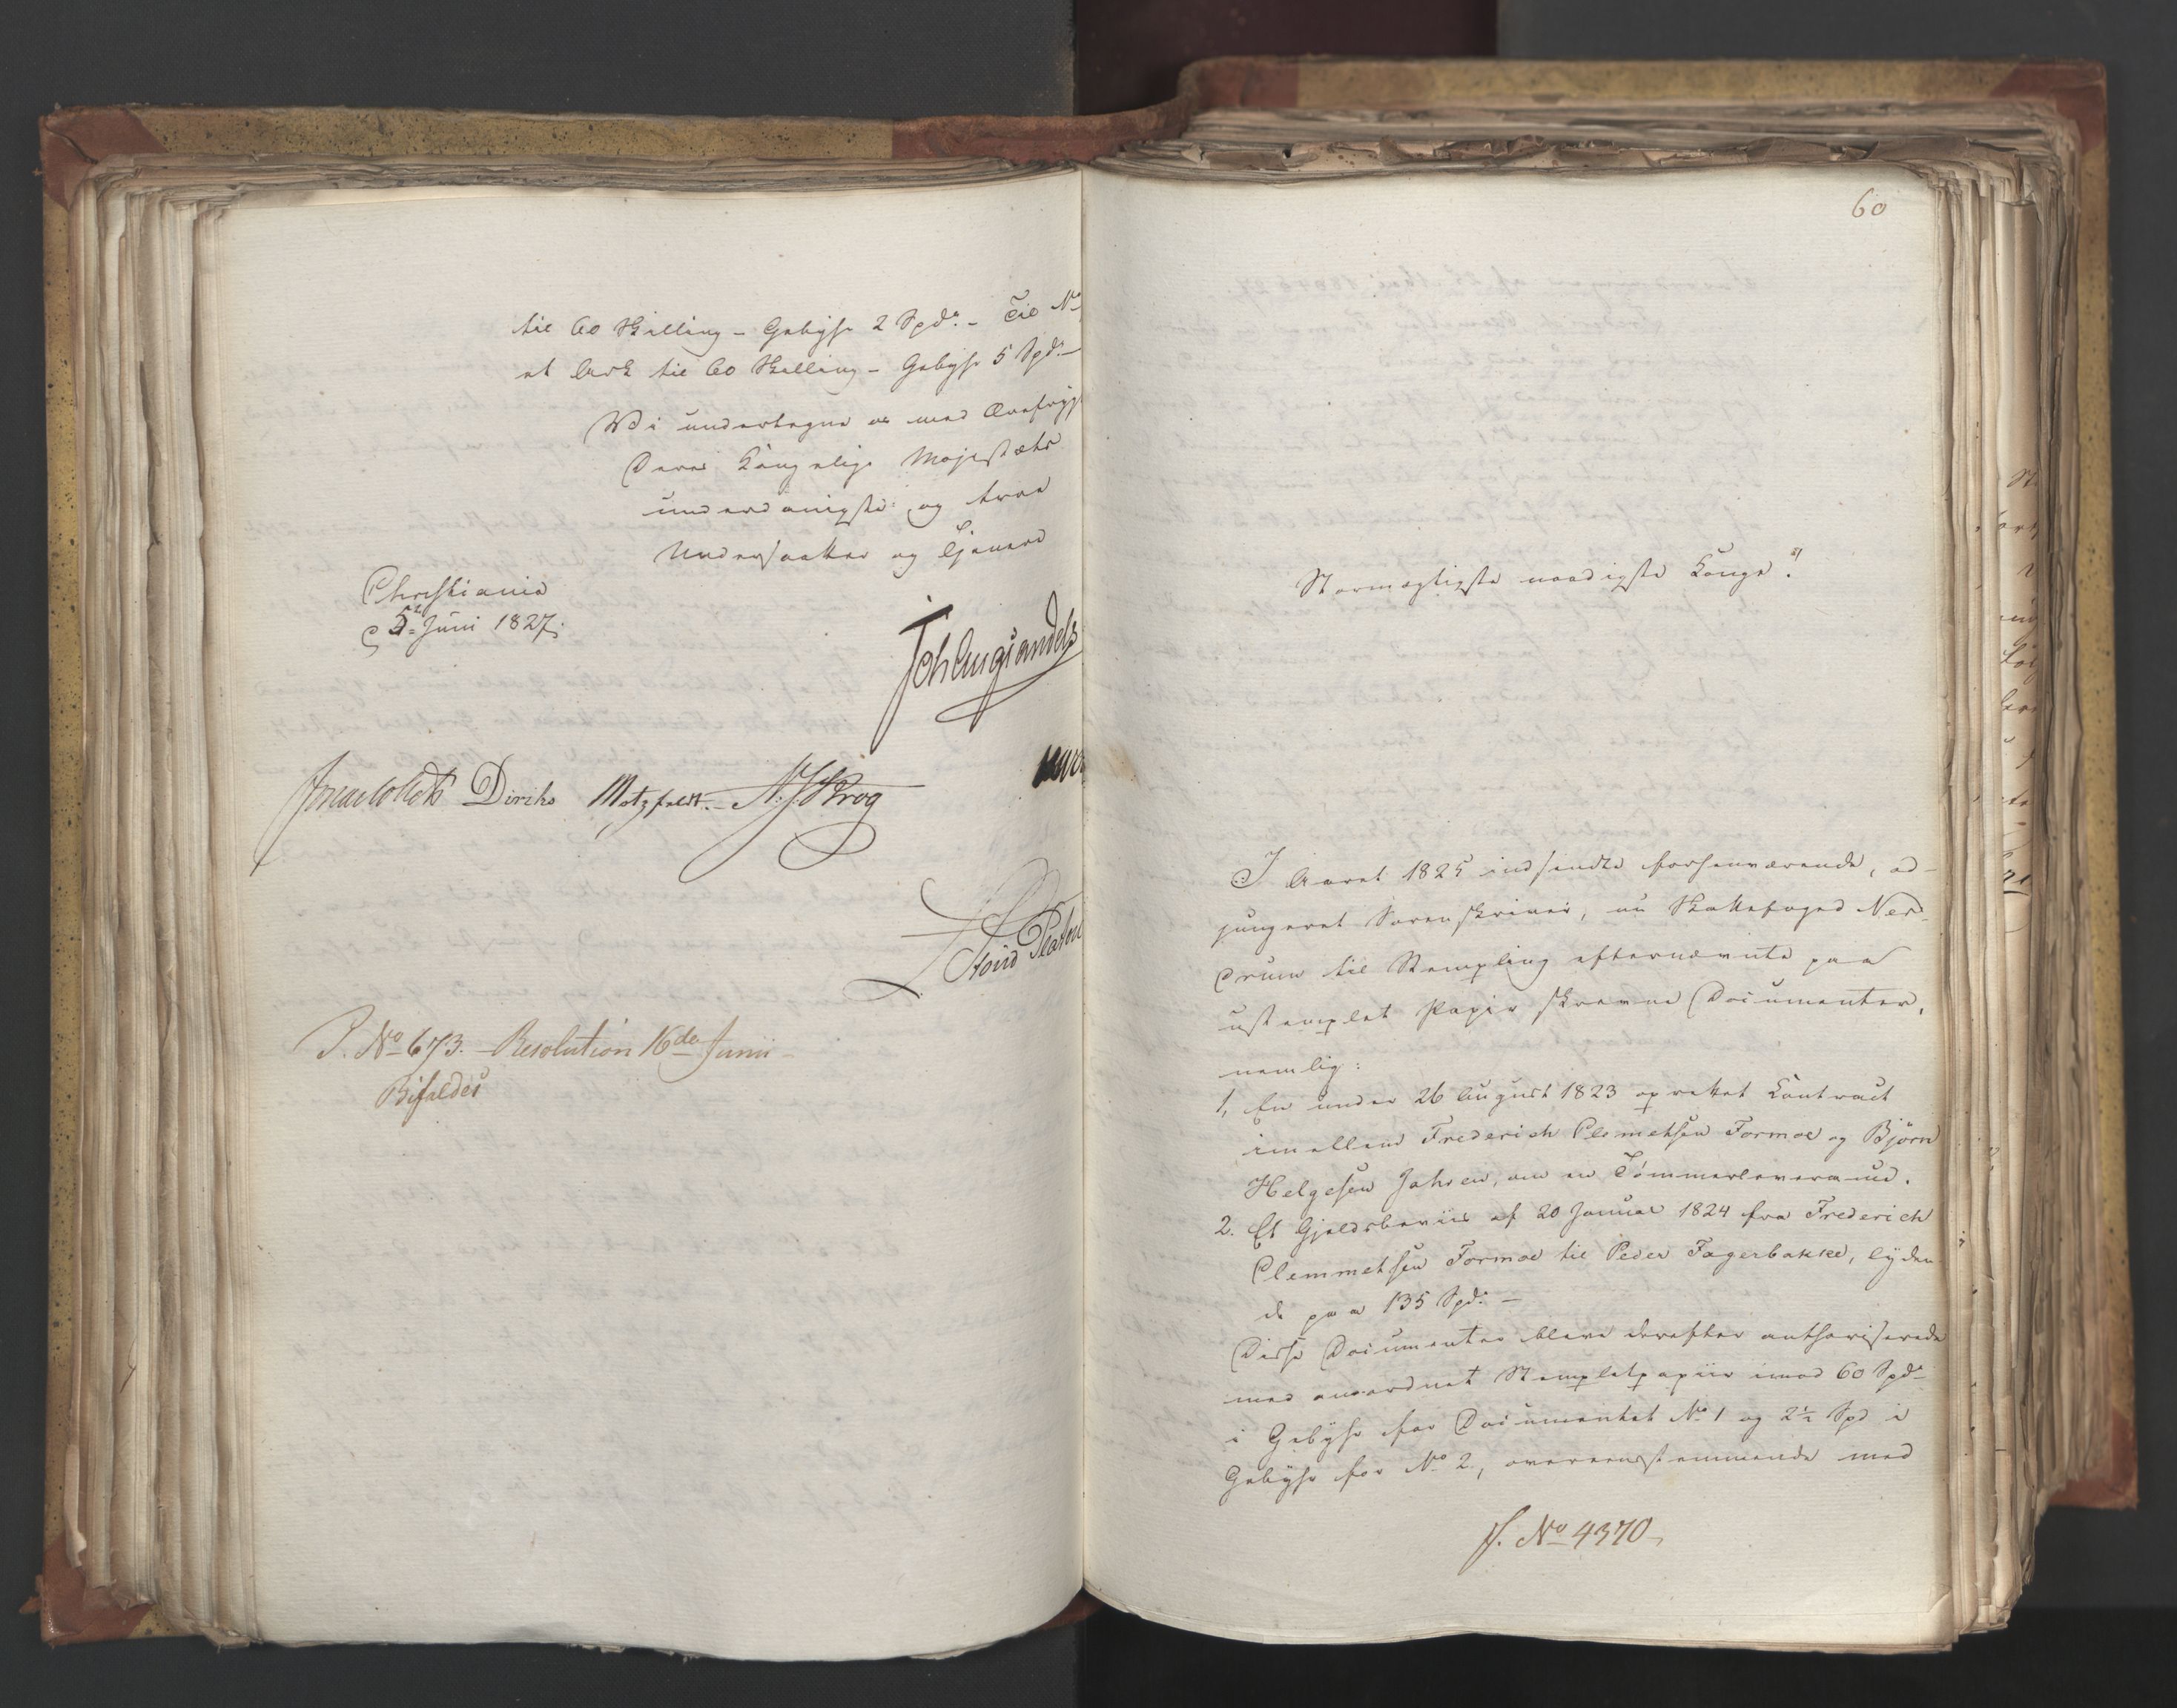 til 60 Skilling – Gebyhr 2 Spd: – Til No
et Ark til 60 Skilling – Gebyhr 5 Spd: –
Vi undertegne os med Ærefrygt
Deres Kongelige Majestæts
underdanigste og troe
Undersaatter og Tjenere
Christiania
d 5te Juni 1827.
Joh Aug Sandels
Diriks Motzfeldt. N. J. Krog
P. No 673. – Resolution 16de Junii –
Bifaldes
60
Stormægtigste naadigste Konge!
I Aaret 1825 indsendte forhenværende, ad-
jungeret Sorenskriver, nu Skattefoged Ner-
drum til Stempling efternævnte paa
ustemplet Papir skrevne Documenter,
nemlig:
1, En under 26 August 1823 oprettet Contract
imellem Frederich Clemetsen Formoe og Björn
Helgesen Jahren, om en Tömmerleverance.
2. Et Gjeldsbeviis af 20 Januar 1824 fra Frederich
Clemmetsen Formoe til Peder Fagerbakke, lyden
de paa 135 Spd: –
Disse Documenter bleve derefter authoriserede
med anordnet Stempletpapiir imod 60 Spd:
i Gebyhr for Documentet No 1 og 2½ Spd i
Gebyhr for No 2, overeensstemmende med
J. No 4370 –